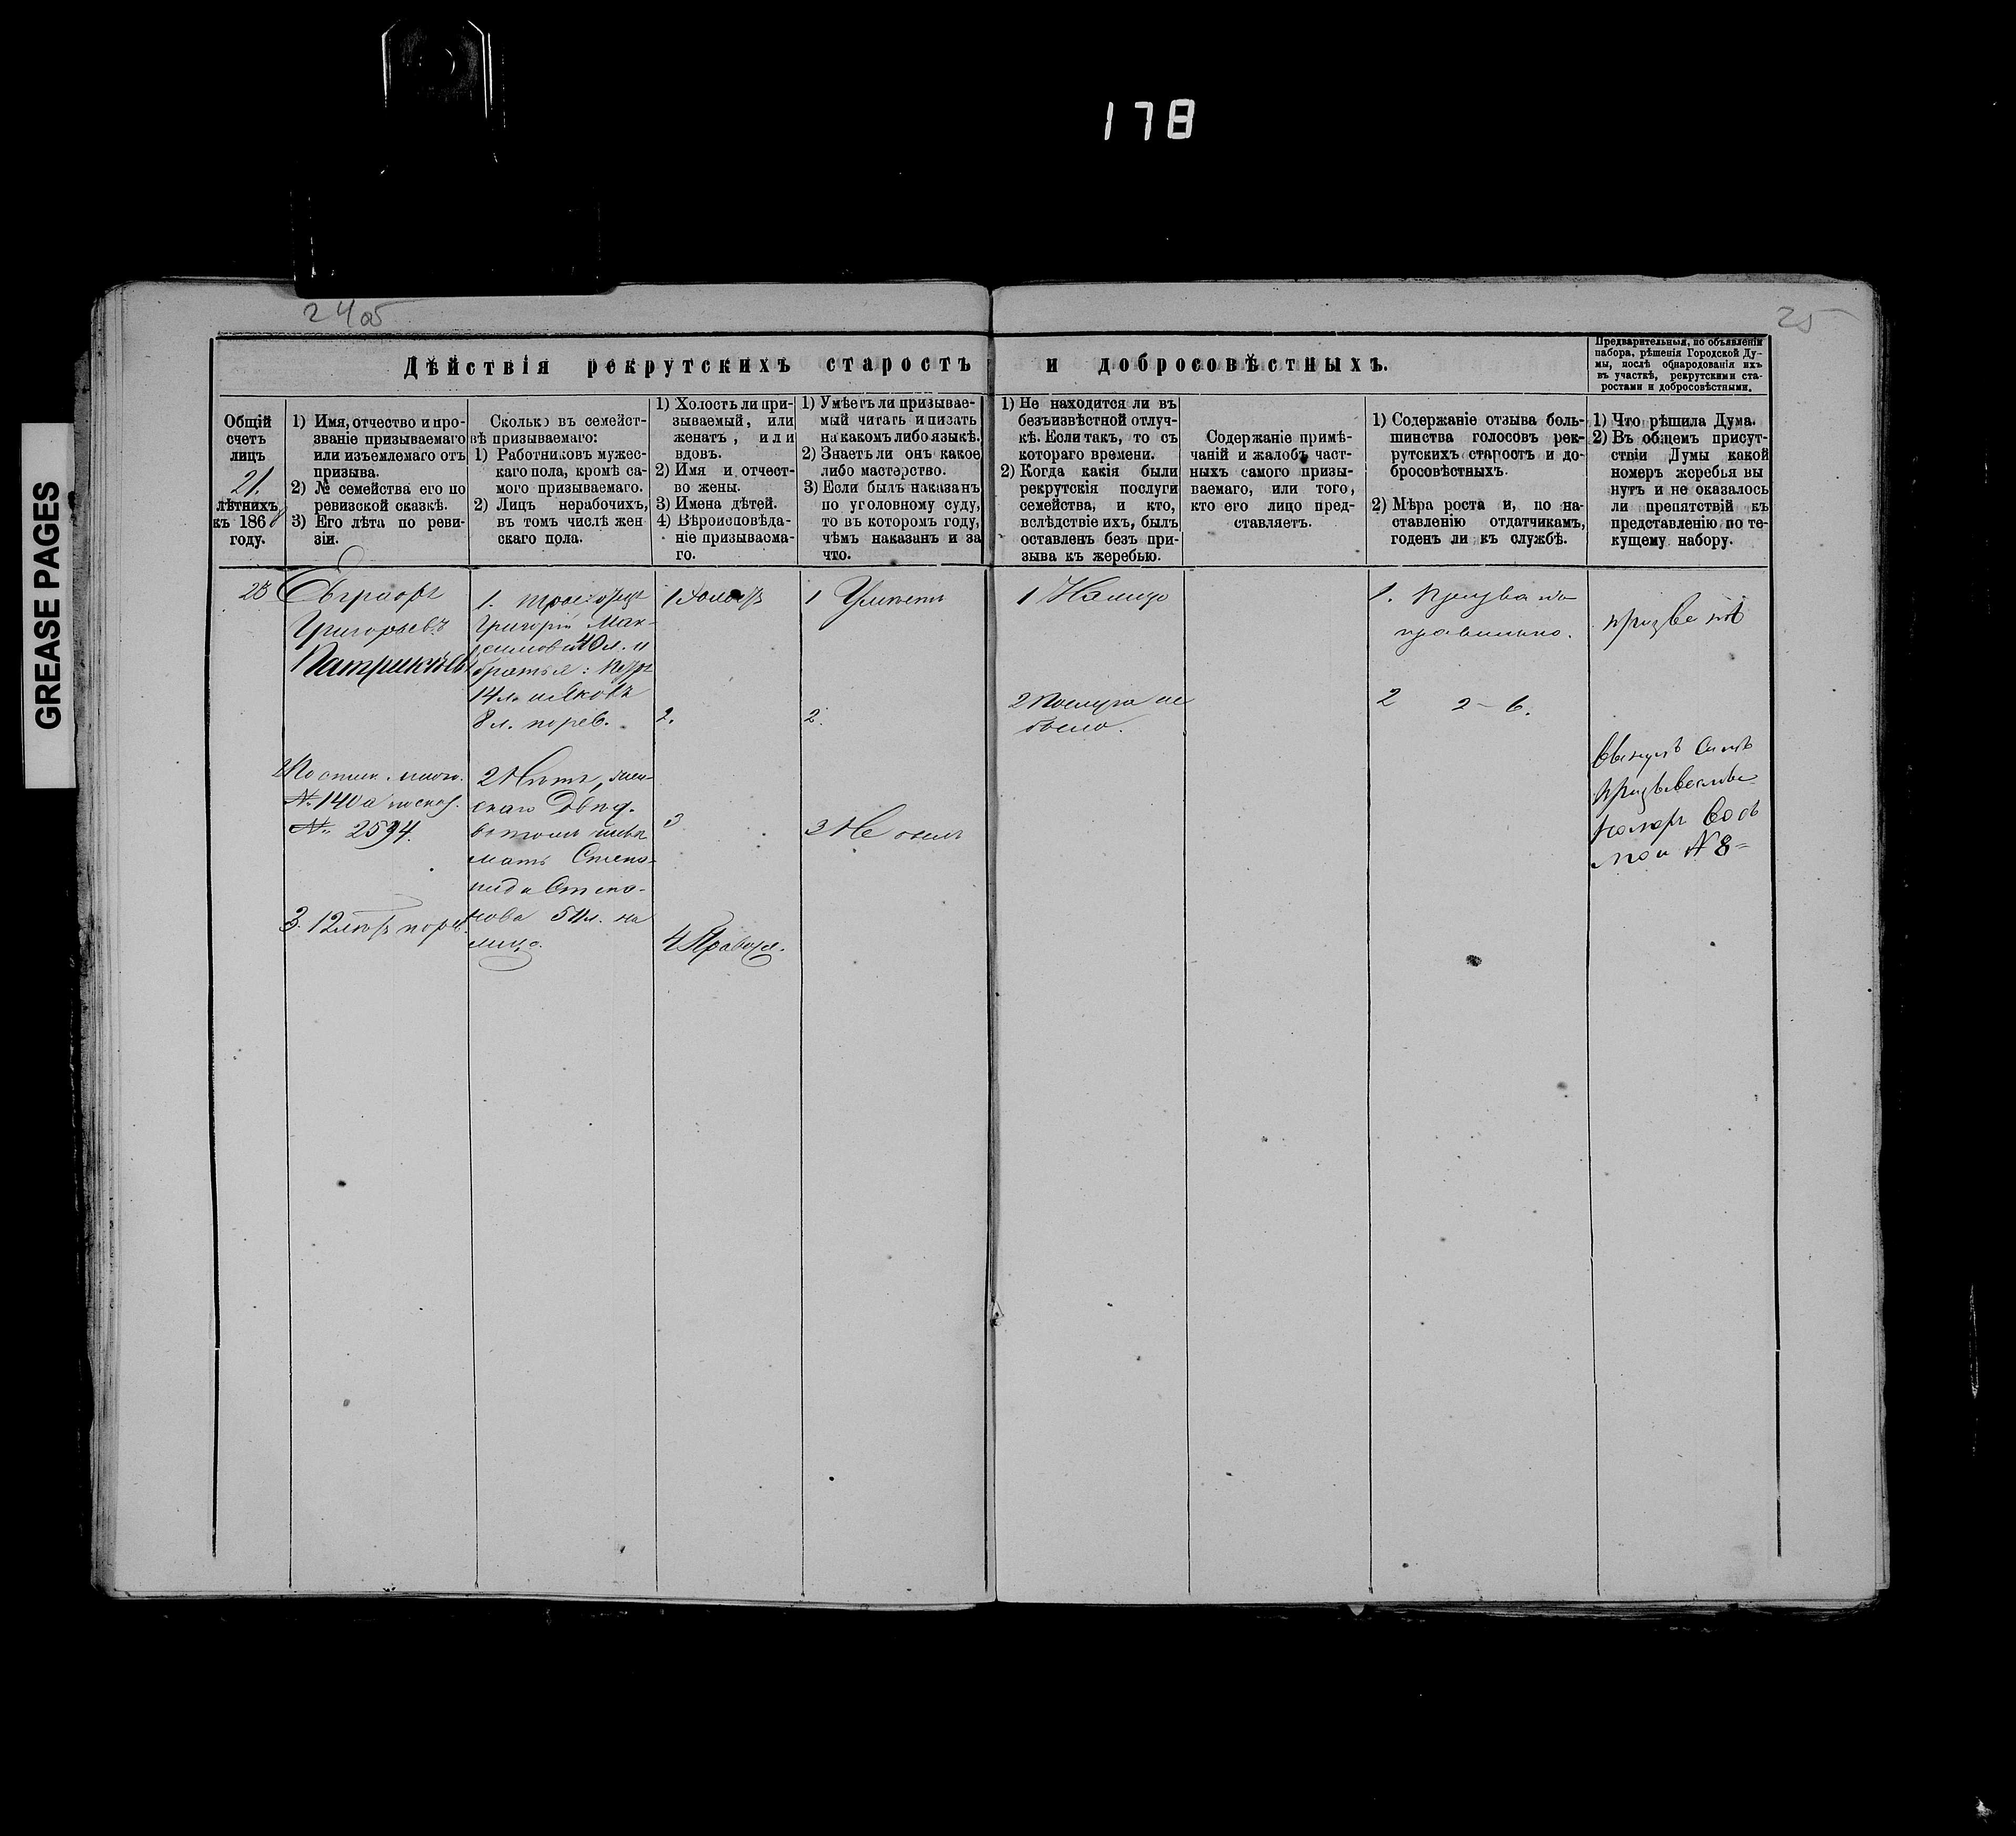 178
GREASE PAGES
24 об
25
Дѣйствія рекрутскихъ старостъ и добросовѣстныхъ.
Предварительныя, по объявленіи
набора, рѣшенія Городской Ду-
мы, послѣ обнародованія ихъ
въ участкѣ, рекрутскими ста-
ростами и добросовѣстными.
Общій
счетъ
лицъ
21.
лѣтнихъ
къ 1868
году.
1) Имя, отчество и про-
званіе призываемаго
или изъемлемаго отъ
призыва.
2) № семейства его по
ревизской сказкѣ.
3) Его лѣта по реви-
зіи.
Сколько въ семейст-
вѣ призываемаго:
1) Работниковъ мужес-
каго пола, кромѣ са-
мого призываемаго.
2) Лицъ нерабочихъ,
въ томъ числѣ жен
скаго пола.
1) Холостъ ли при-
зываемый, или
женатъ, или
вдовъ.
2) Имя и отчест-
во жены.
3) Имена дѣтей.
4) Вѣроисповѣда-
ніе призываема-
го.
1) Умѣетъ ли призывае-
мый читать и писать
на какомъ либо языкѣ.
2) Знаетъ ли онъ какое
либо мастерство.
3) Если былъ наказанъ
по уголовному суду,
то въ которомъ году,
чѣмъ наказанъ и за
что.
1) Не находится ли въ
безъизвѣстной отлуч-
кѣ. Если такъ, то съ
котораго времени.
2) Когда какія были
рекрутскія послуги
семейства, и кто,
вслѣдствіе ихъ, былъ
оставленъ безъ при-
зыва къ жеребью.
Содержаніе примѣ-
чаній и жалобъ част-
ныхъ самого призы-
ваемаго, или того,
кто его лицо пред-
ставляетъ.
1) Содержаніе отзыва боль-
шинства голосовъ рек-
рутскихъ старостъ и до-
бросовѣстныхъ.
2) Мѣра роста и, по на-
ставленію отдатчикамъ,
годенъ ли къ службѣ.
1) Что рѣшила Дума.
2) Въ общемъ присут-
ствіи Думы какой
номеръ жеребья вы
нутъ и не оказалось
ли препятствій къ
представленію по те-
кущему набору.
23 Евграфъ
Григорьевъ
Патрикѣевъ
№ 140 а по сказ.
№ 2594.
3. 12 лѣтъ по рев.
1.
Григорій Мак-
симовъ 40 л. и
братья: Петръ
14 л. и Яковъ
8 л. по рев.
2 Нѣтъ, жен-
скаго Двѣ д.
въ томъ числѣ
мать Степа-
нида Степа-
нова 51 л. на
лицо.
1 Холостъ
2.
3
4 Правосл.
1 Умѣетъ
2.
3 Не былъ
1 Налицо
2 Послуги не
было.
1. Призванъ
правильно.
2 2–6.
призванъ
Вынулъ Самъ
призываемый
номеръ Вось
мой № 8=